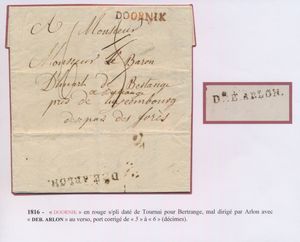 DOORNIK
A Monsieur
Monsieur le Baron
D'huart de Bertange
a Bertrange
pres de Luxembourg
des païs des forês
DEB. ARLON.
DEB. ARLON.
1816 - « DOORNIK » en rouge s/pli daté de Tournai pour Bertrange, mal dirigé par Arlon avec
« DEB. ARLON » au verso, port corrigé de « 5 » à « 6 » (décimes).